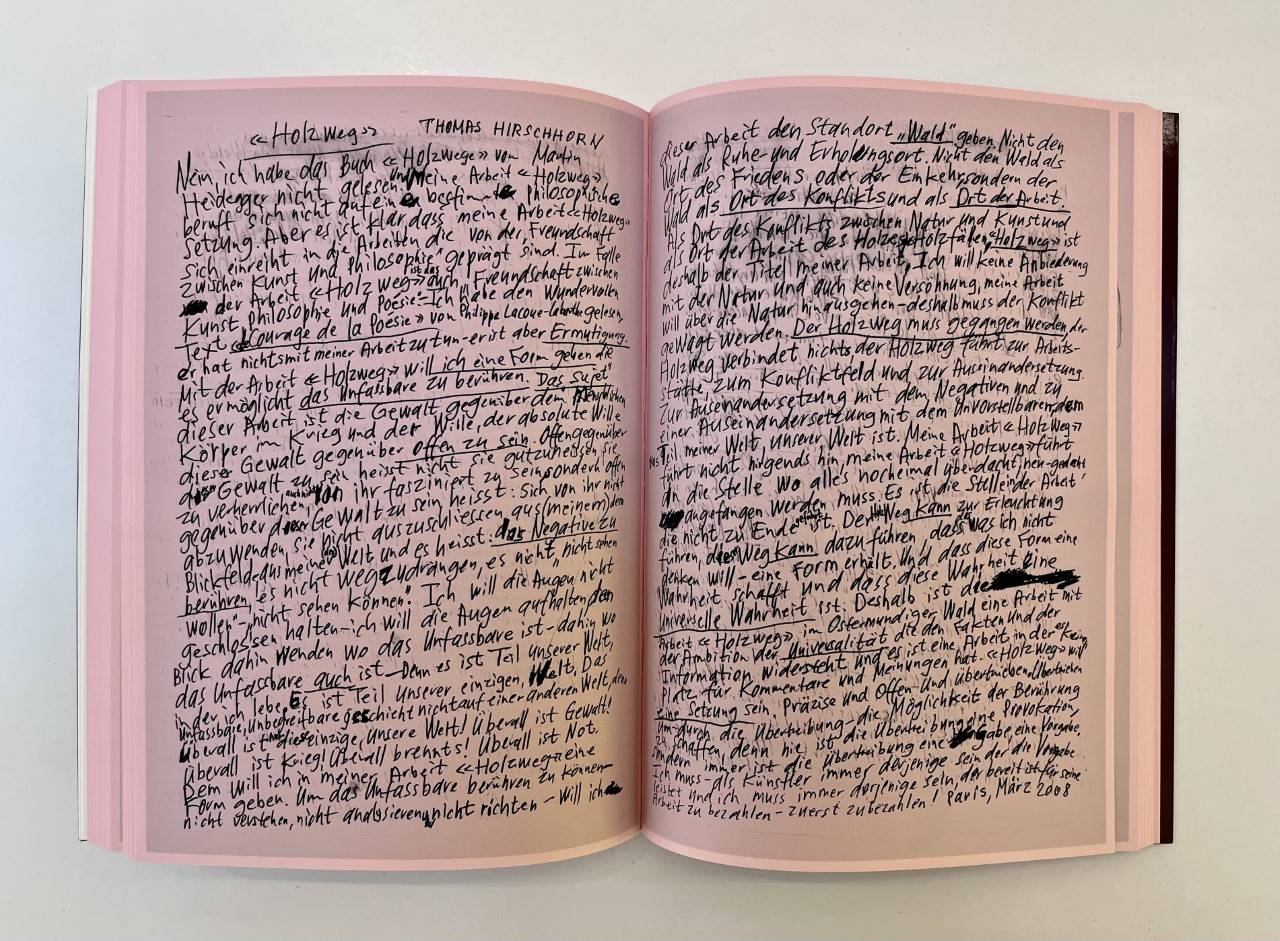 «Holzweg» THOMAS HIRSCHHORN
Nein ich habe das Buch «Holzwege» von Martin
Heidegger nicht gelesen und Meine Arbeit «Holzweg»
beruft sich nicht auf eine bestimmte philosophische
Setzung. Aber es ist klar dass meine Arbeit «Holzweg»
sich einreiht in die Arbeiten die von der „Freundschaft
zwischen Kunst und Philosophie" geprägt sind. Im Falle
der Arbeit «Holzweg» ist das auch „Freundschaft zwischen
Kunst, Philosophie und Poesie". Ich habe den wundervollen
Text «Courage de la Poésie» von Philippe Lacoue-Labarthe gelesen,
er hat nichts mit meiner Arbeit zu tun - er ist aber Ermutigung.
Mit der Arbeit «Holzweg» will ich eine Form geben die
es ermöglicht das Unfassbare zu berühren. Das „Sujet"
dieser Arbeit ist die Gewalt gegenüber dem Menschlichen
Körper im Krieg und der Wille, der absolute Wille
dieser Gewalt gegenüber offen zu sein. Offen gegenüber
dieser Gewalt zu sein heisst nicht sie gutzuheissen, sie
zu verherrlichen, auch nicht von ihr fasziniert zu sein sondern offen
gegenüber dieser Gewalt zu sein heisst: Sich von ihr nicht
abzuwenden, sie nicht auszuschliessen aus (meinem) dem
Blickfeld, aus meiner (der) Welt und es heisst: das Negative zu
berühren, es nicht wegzudrängen, es nicht „nicht sehen
wollen" - „nicht sehen können". Ich will die Augen nicht
geschlossen halten - ich will die Augen aufhalten den
Blick dahin wenden wo das Unfassbare ist - dahin wo
das Unfassbare auch ist - Denn es ist Teil unserer Welt,
in der ich lebe. Es ist Teil unserer einzigen Welt. Das
Unfassbare, Unbegreifbare geschicht nicht auf einer anderen Welt, denn
überall ist diese einzige, unsere Welt! Überall ist Gewalt!
Überall ist Krieg! Überall brennts! Überall ist Not.
Dem will ich in meiner Arbeit «Holzweg» eine
Form geben. Um das Unfassbare berühren zu können -
nicht verstehen, nicht analysieren, nicht richten - will ich
dieser Arbeit den Standort „Wald" geben. Nicht den
Wald als Ruhe- und Erholungsort. Nicht den Wald als
Ort des Friedens oder der Einkehr sondern der
Wald als Ort des Konflikts und als Ort der Arbeit.
Als Ort des Konflikts zwischen Natur und Kunst und
als Ort der Arbeit des Holzes Holzfällen, «Holzweg» ist
deshalb der Titel meiner Arbeit, Ich will keine Anbiederung
mit der Natur und auch keine Versöhnung, meine Arbeit
will über die Natur hinausgehen - deshalb muss der Konflikt
gewagt werden. Der Holzweg muss gegangen werden der
Holzweg verbindet nichts der Holzweg führt zur Arbeits-
stätte, zum Konfliktfeld und zur Auseinandersetzung.
Zur Auseinandersetzung mit dem Negativen und zu
einer Auseinandersetzung mit dem Unvorstellbaren, dem
was Teil meiner Welt unserer Welt ist. Meine Arbeit «Holzweg»
führt nicht nirgends hin, meine Arbeit «Holzweg» führt
an die Stelle wo alles nocheinmal überdacht, neu-gedacht
angefangen werden muss. Es ist die Stelle in der Arbeit
die nicht zu Ende geführt ist. Der Weg kann zur Erleuchtung
führen, der Weg kann dazu führen, dass das was ich nicht
denken will - eine Form erhält. Und dass diese Form eine
Wahrheit schafft und dass diese Wahrheit eine
universelle Wahrheit ist. Deshalb ist die
Arbeit «Holzweg» im Ostermundiger Wald eine Arbeit mit
der Ambition der Universalität die den Fakten und der
Information widersteht und es ist eine Arbeit in der es kein
Platz für Kommentare und Meinungen hat. «Holzweg» will
eine Setzung sein, Präzise und Offen - und übertrieben. Übertrieben
um durch die Übertreibung - die Möglichkeit der Berührung
zu schaffen, denn nie ist die Übertreibung eine Provokation,
sondern immer ist die Übertreibung eine Vorgabe eine Vorgabe.
Ich muss - als Künstler immer derjenige sein der die Vorgabe
leistet und ich muss immer derjenige sein, der bereit ist für seine
Arbeit zu bezahlen - zuerst zu bezahlen! Paris, März 2008